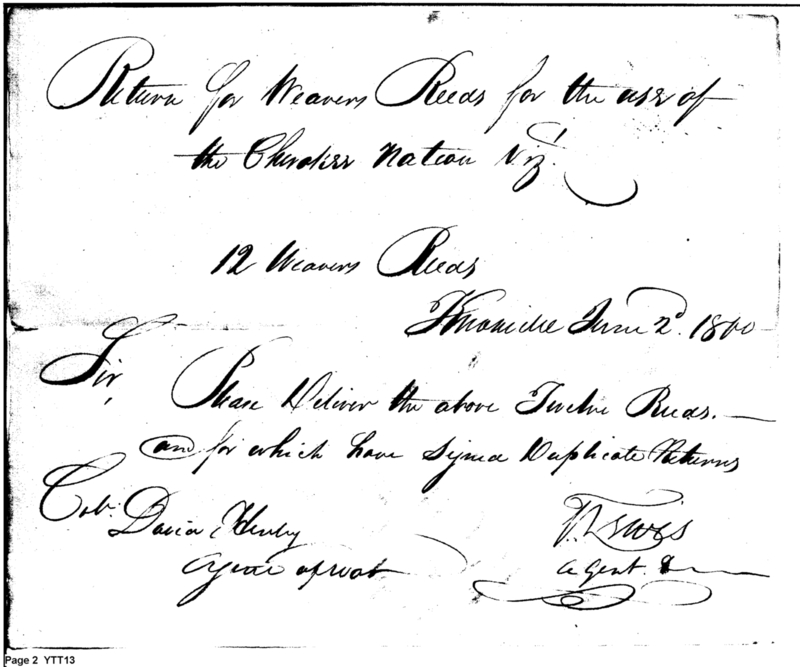 Return for Weavers Reeds for the use of
the Cherokee Nation Viz.
12 Weavers Reeds
Knoxville June 2d. 1800
Sir,
Please Deliver the above Twelve Reeds.
and for which have Signed Duplicate Returns
Colo. David Henley
Agent of War
T. Lewis
agent
Page 2 YTT13